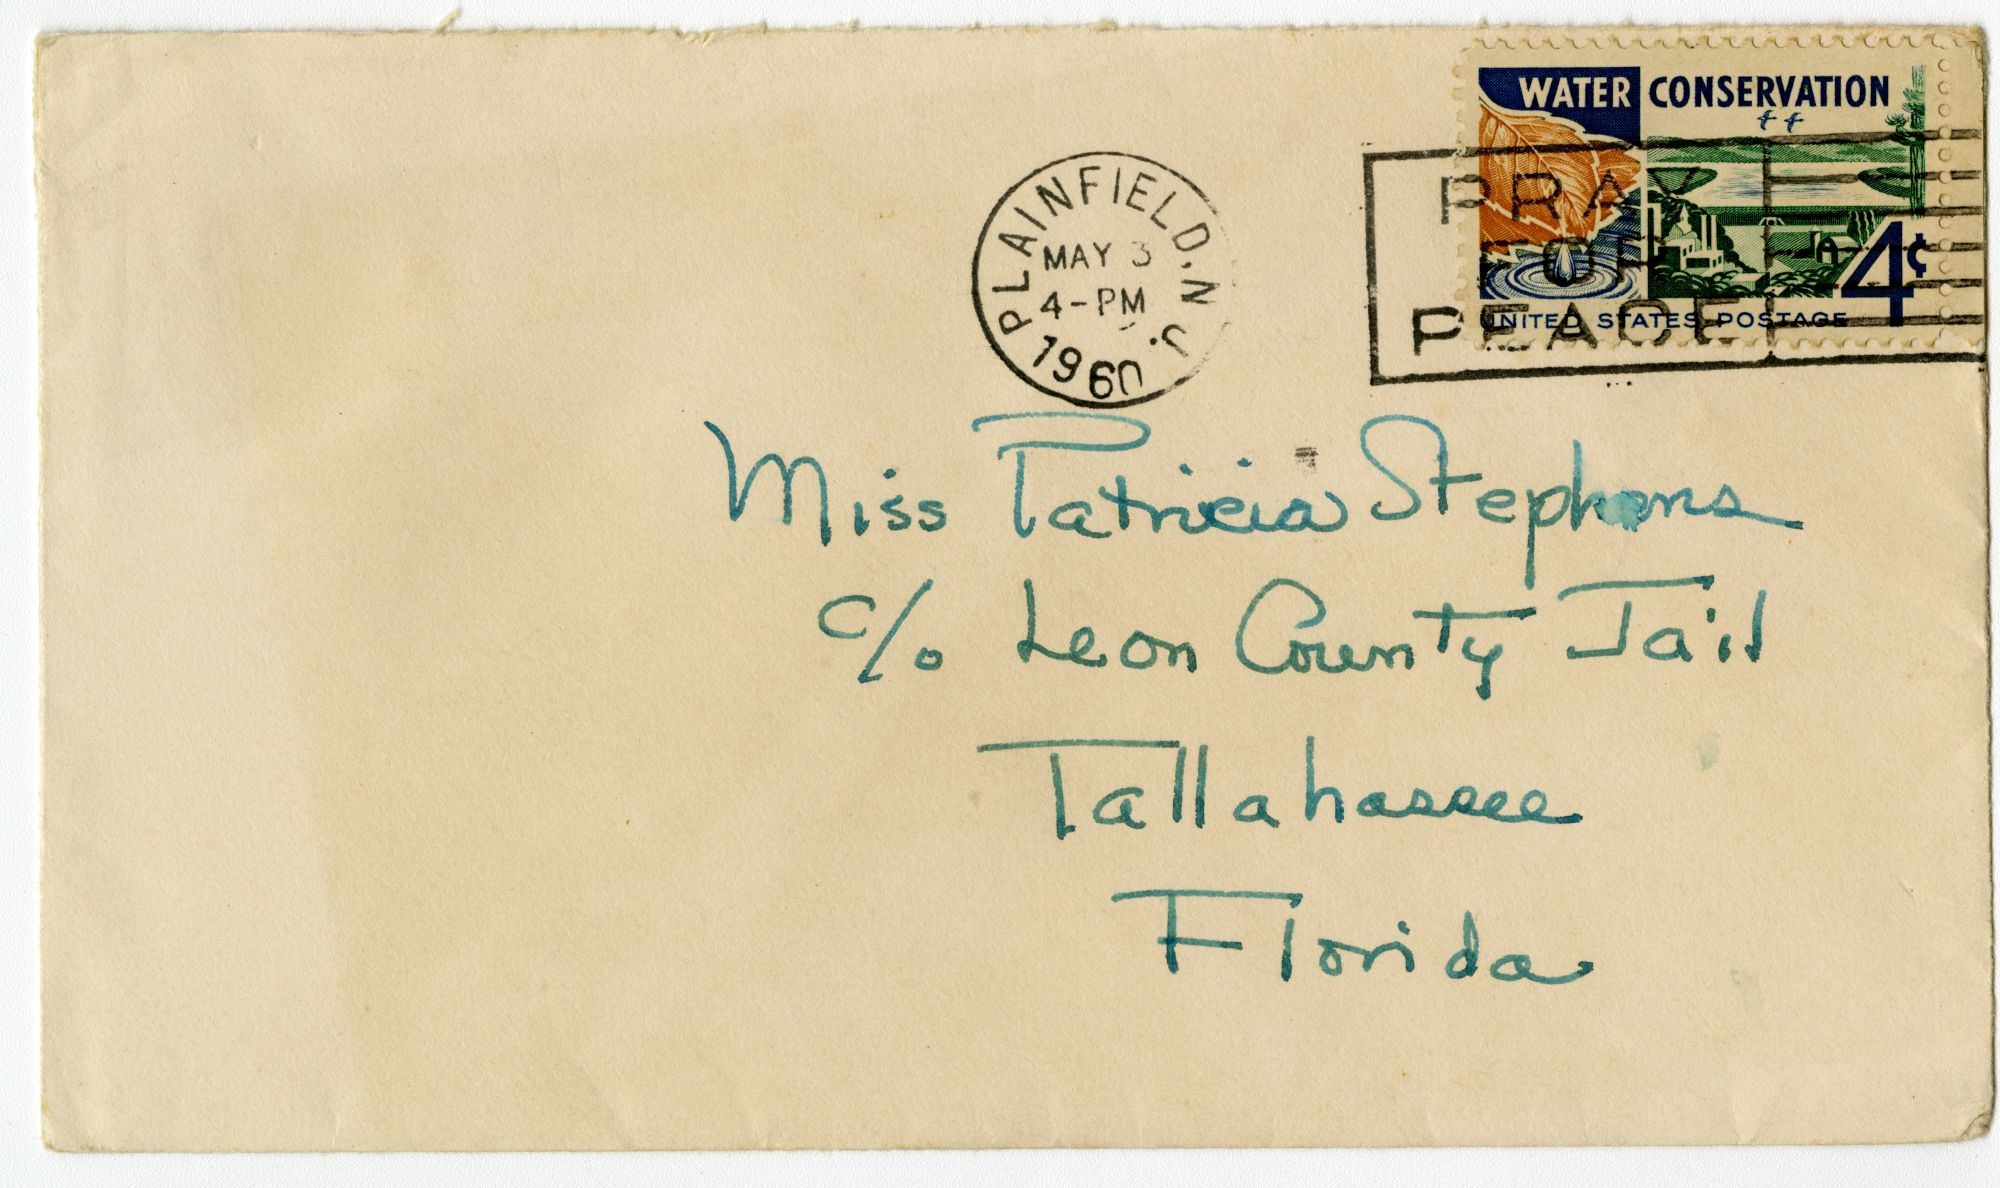 WATER CONSERVATION
4¢
UNITED STATES POSTAGE
PLAINFIELD. N. J.
MAY 3
4-PM
1960
PRAY
FOR
PEACE
Miss Patricia Stephens
c/o Leon County Jail
Tallahassee
Florida